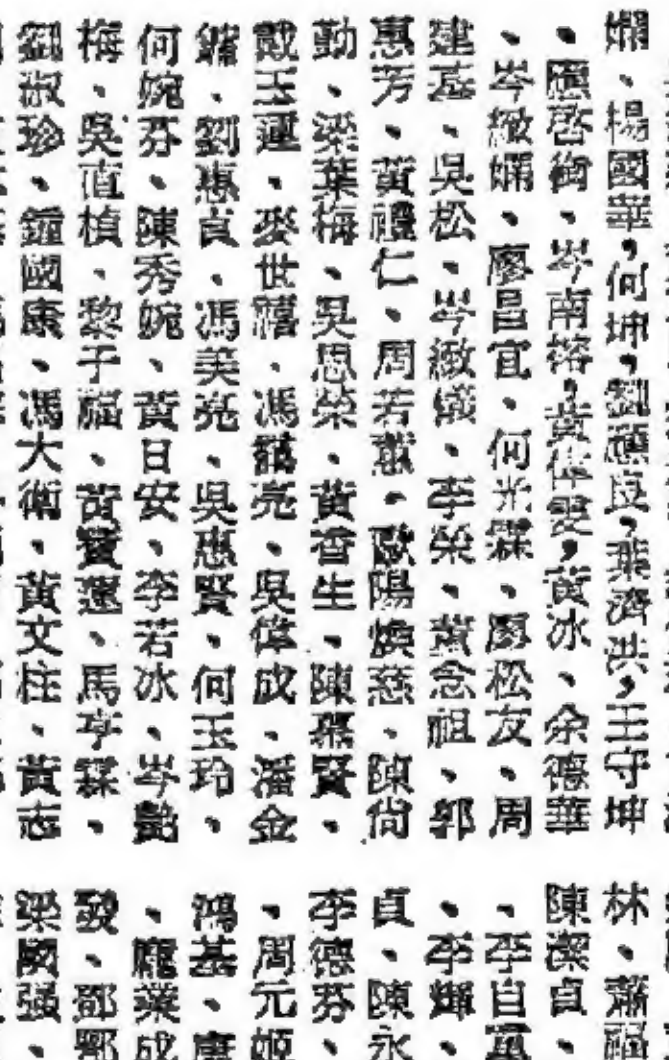 嫻、楊國華，何坤，劉穗良，葉濟洪，王守坤
、鄺啓衡、岑南榕，黃偉雯，黃冰、余德華
、岑緻嫻、廖昌宜、何光霖、廖松友、周
建基、吳松、岑緻儀、李榮、黃念祖、郭
惠芳、黃禮仁、周若蕙、歐陽煥慈、陳尚
勤、梁葉梅、吳恩榮、黃香生、陳業賢、
戴玉蓮、麥世禧、馮鎮亮、吳偉成、潘金
、劉惠貞、馮美亮、吳惠賢、何玉玲、
何婉芬、陳秀婉、黃日安、李若冰、岑艷
梅、吳直楨、黎子福、黃寶蓮、馬亭霖、
劉淑珍、鍾國康、馮大衛、黃文柱、黃志
林、蕭福
陳潔貞、
、李自重
、李輝、
貞、陳永
李德芬、
、周元姬
鴻基、康
、龐業成
發、鄧
梁國強、